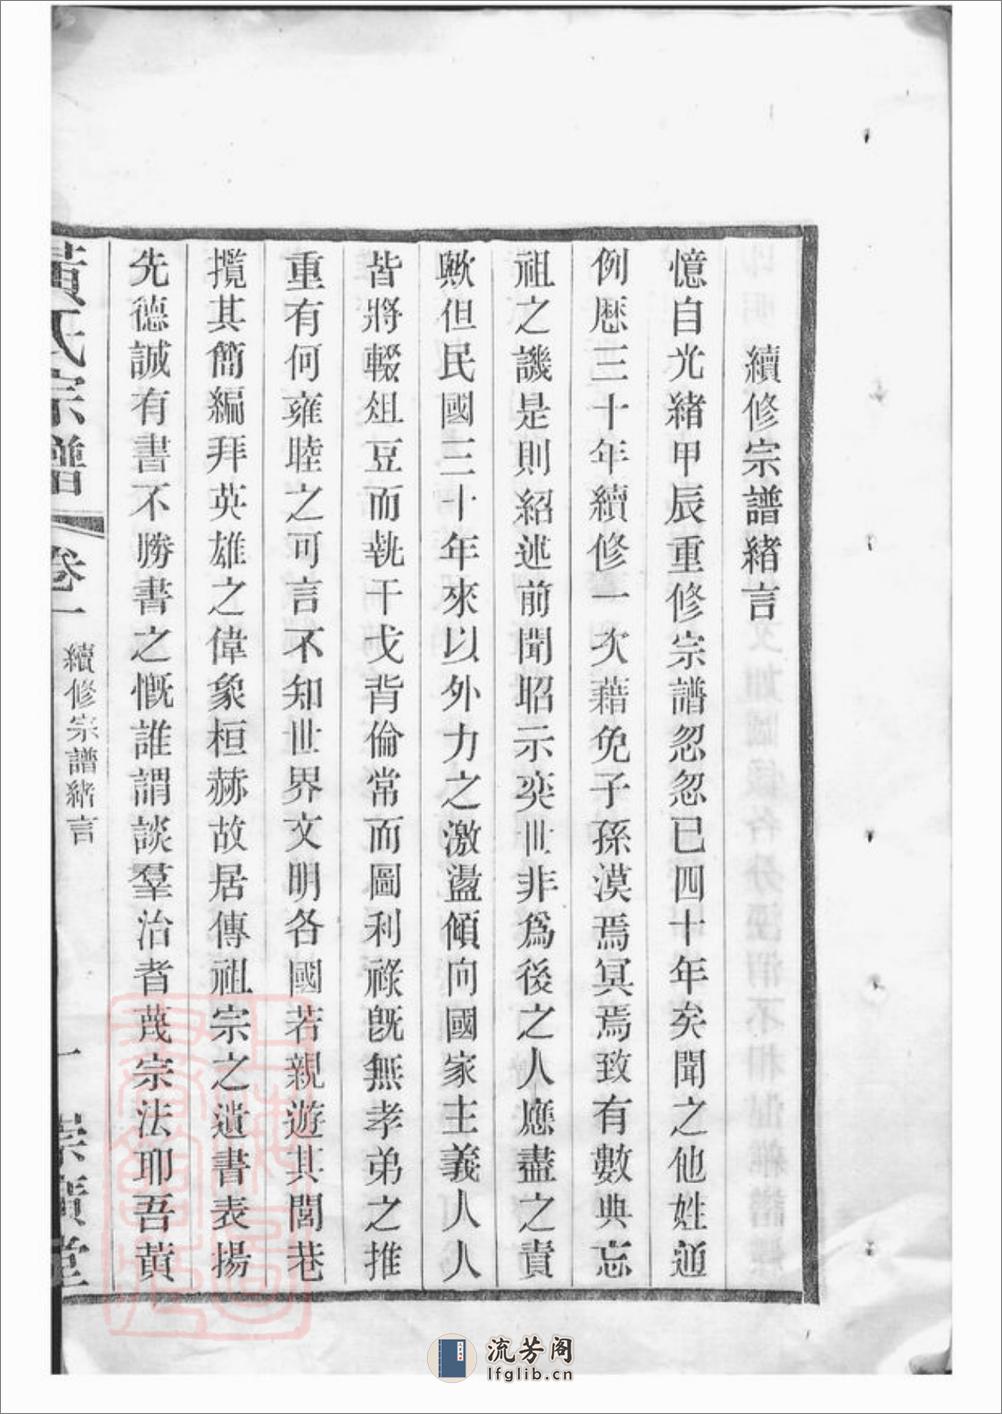 續修宗譜緒言
憶自光緒甲辰重修宗譜忽忽已四十年矣聞之他姓通
例歷三十年續修一次藉免子孫漠焉冥焉致有數典忘
祖之譏是則紹述前聞昭示奕世非爲後之人應盡之責
歟但民國三十年來以外力之激盪傾向國家主義人人
皆將輟俎豆而執干戈背倫常而圖利祿旣無孝弟之推
重有何雍睦之可言不知世界文明各國若親遊其閭巷
攬其簡編拜英雄之偉象桓赫故居傳祖宗之遺書表揚
先德誠有書不勝書之慨誰謂談羣治者蔑宗法耶吾黃
黃氏宗譜
卷一
續修宗譜緒言
一
流芳阁
lfglib.cn